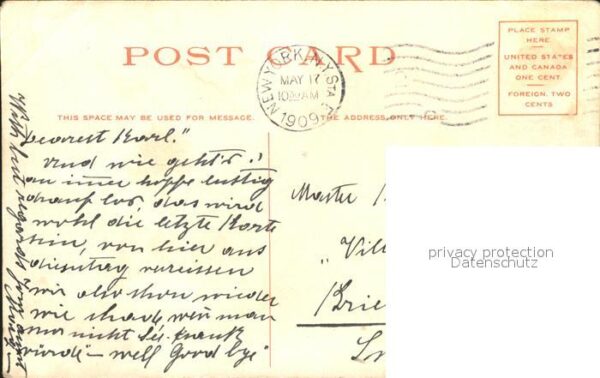 POST CARD
PLACE STAMP
HERE
UNITED STATES
AND CANADA
ONE CENT.
FOREIGN, TWO
CENTS
NEW YORK, N.Y. STA
MAY 17
AM
1909
THIS SPACE MAY BE USED FOR MESSAGE.
THE ADDRESS ONLY HERE.
Dearest Karl."
Und wie geht's?
an immer hoppe lustig
drauf los, das wird
wohl die letzte Karte
sein, von hier aus
dienstag verreissen
wir also schon wieder
wie schade wenn man
nur nicht See-krank
würde — well Good bye"
With best regards from
Master
"Vill
privacy protection
Datenschutz